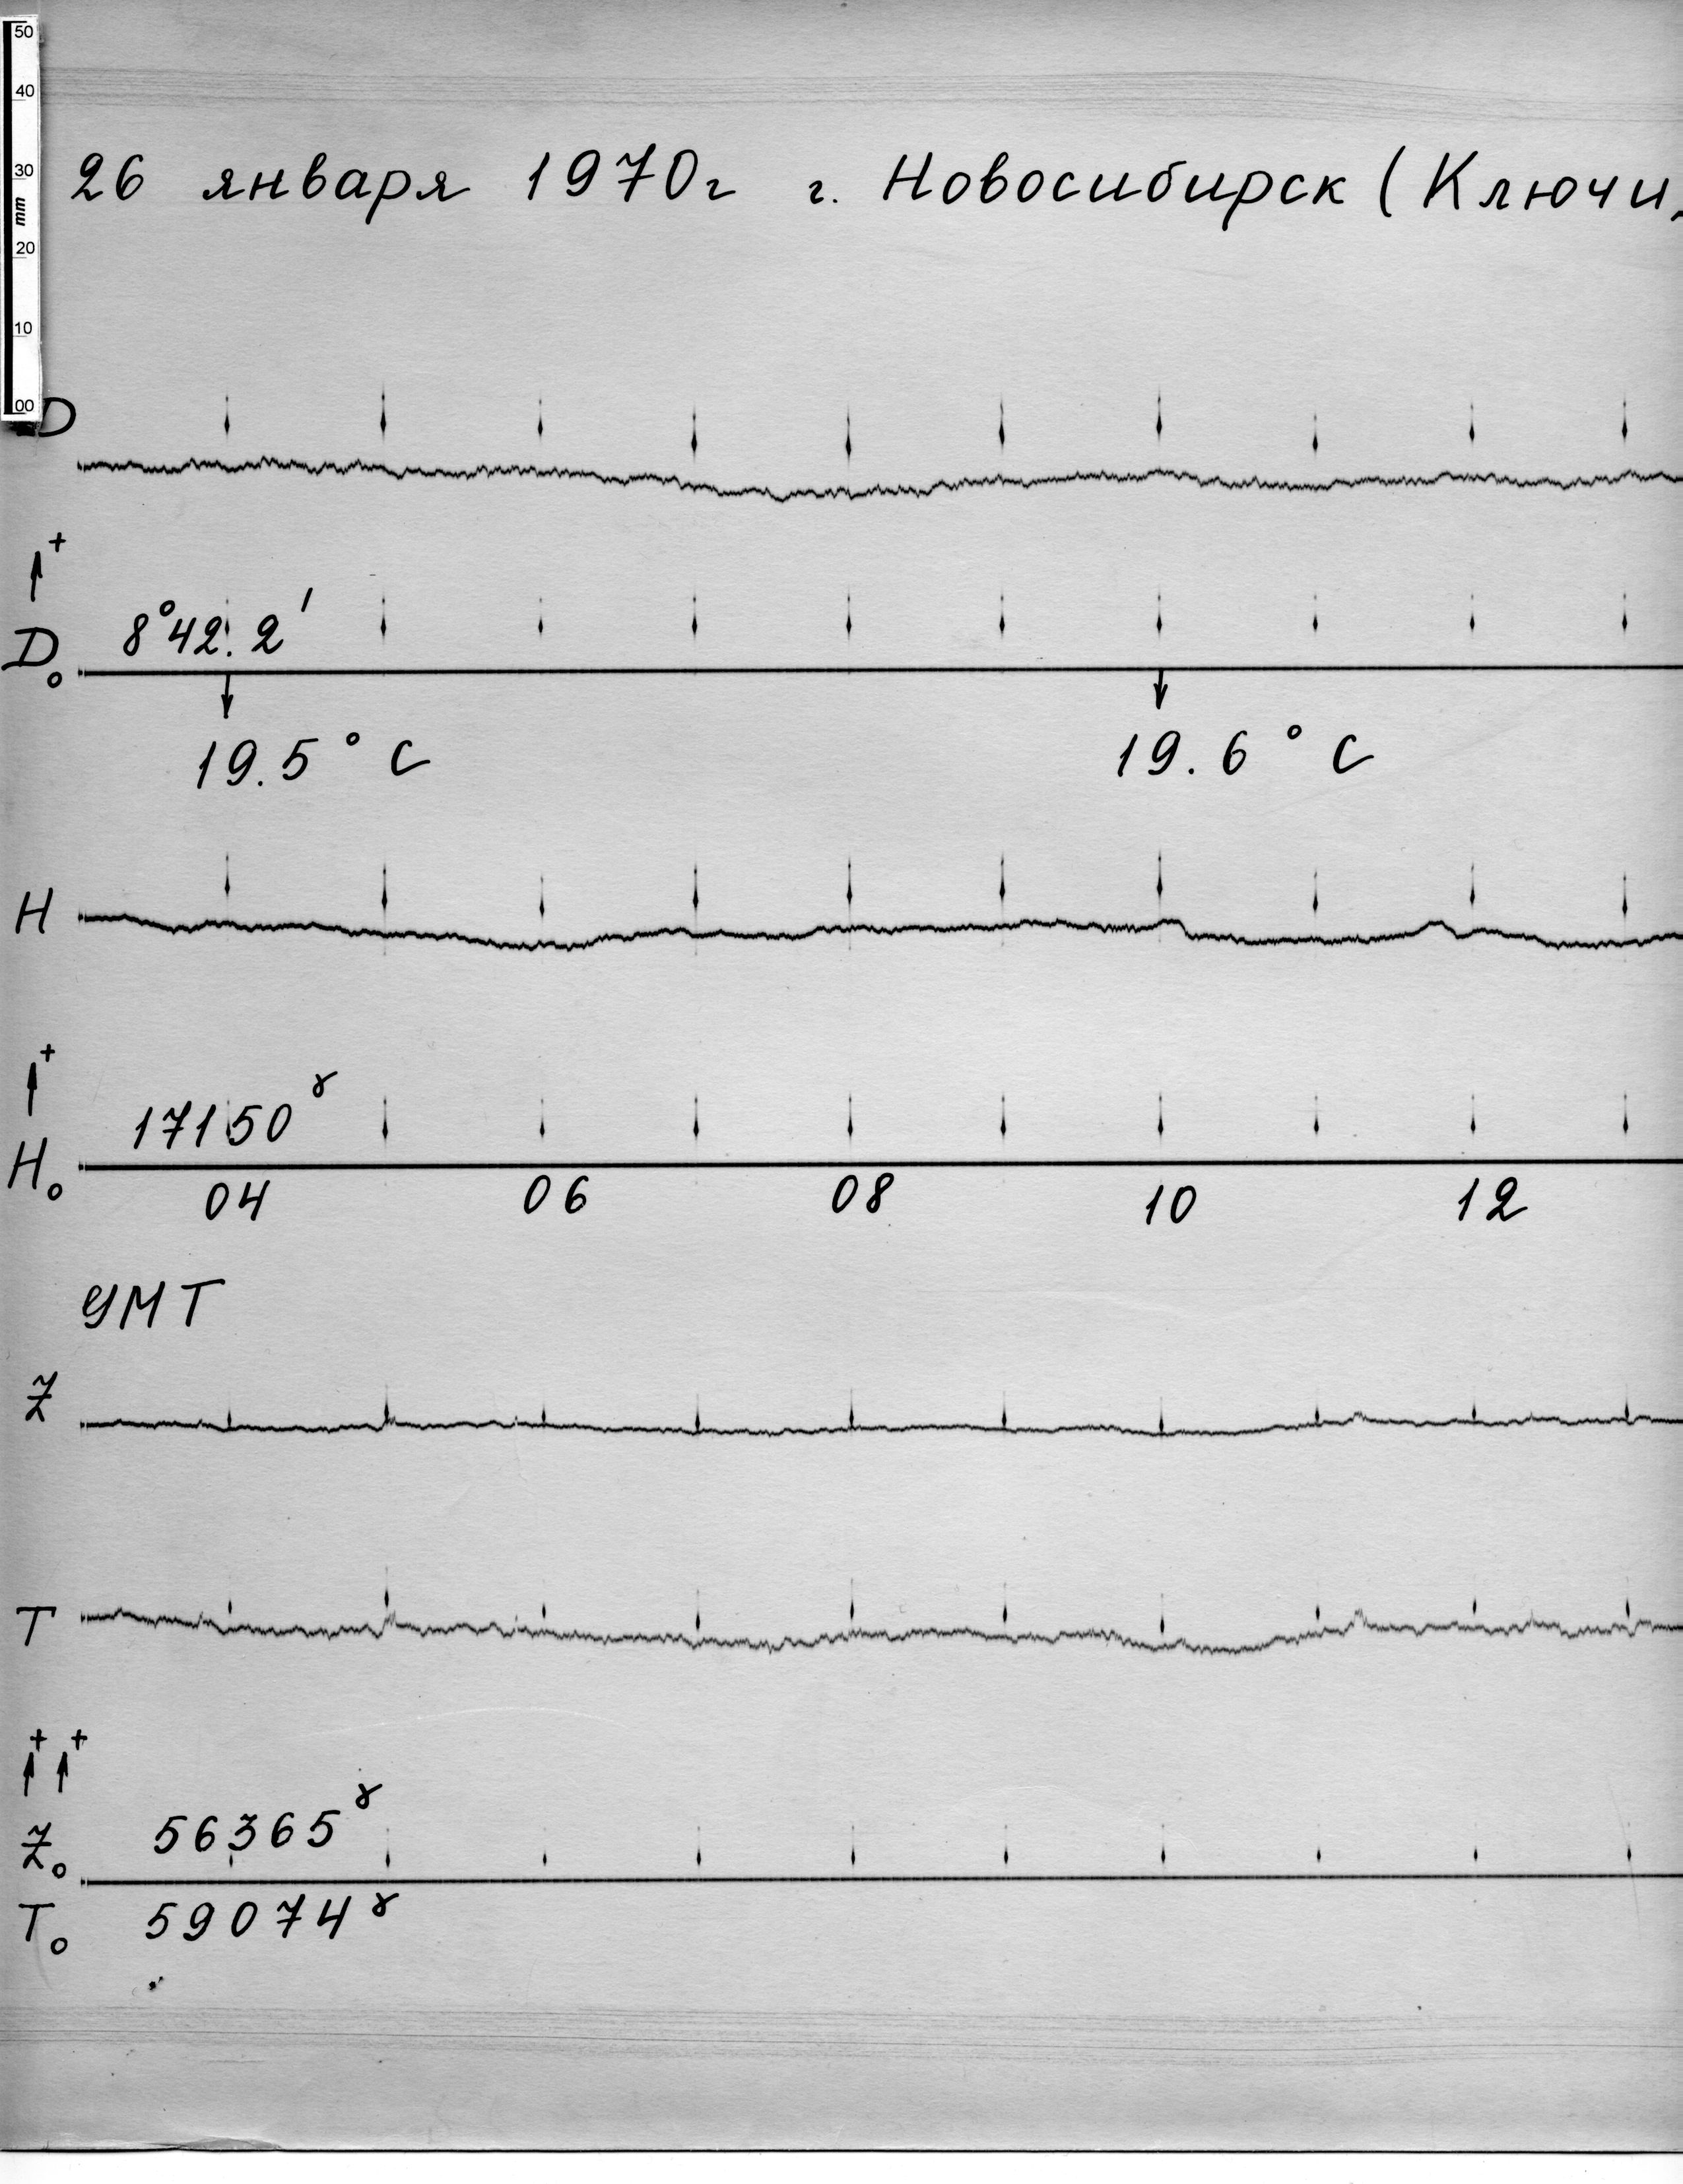 50
40
30
mm
20
10
00
26 января 1970г г. Новосибирск (Ключи,
D
+
8°42.2'
D₀
19.5°C 19.6°C
H
+
17150γ
H₀
04 06 08 10 12
УМТ
Z
T
+ +
56365γ
Z₀
T₀ 59074γ